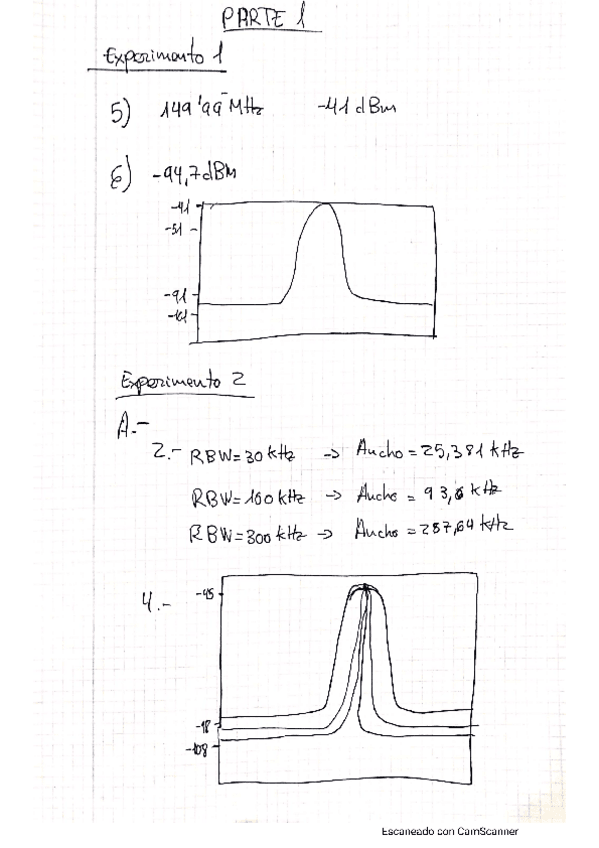 PARTE 1
Experimento 1
5) 149'99 MHz -41 dBm
6) -94,7dBm
-41
-51
-91
-101
Experimento 2
A.-
2.- RBW=30 kHz -> Ancho = 25,381 kHz
RBW=100 kHz -> Ancho = 93,6 kHz
RBW=300 kHz -> Ancho = 257,64 kHz
4.- -45
-98
-108
Escaneado con CamScanner